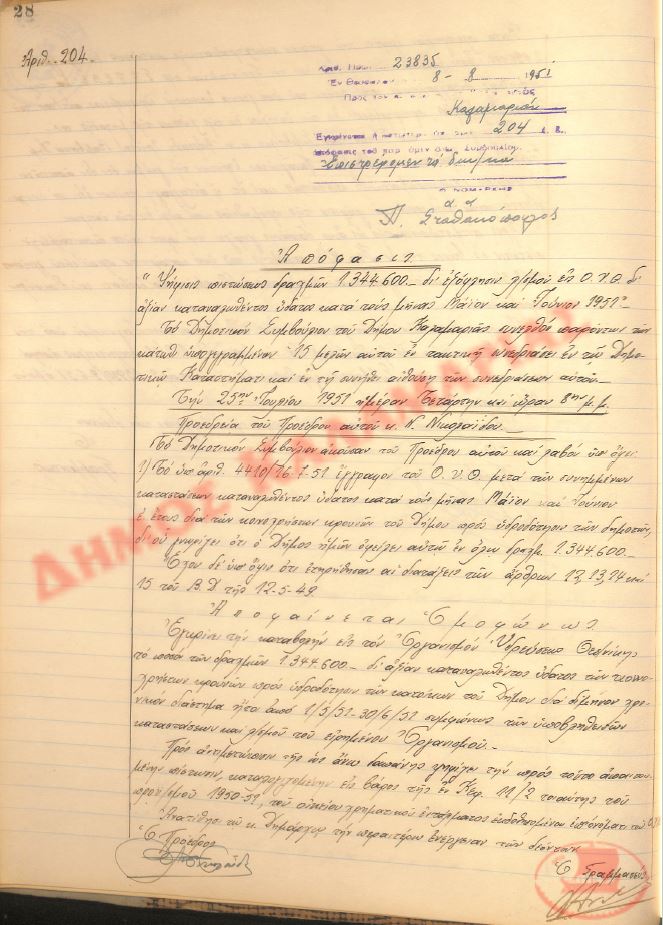 28
Ἀριθ. 204.
Ἀριθ. Πρωτ. 23835
Ἐν Θεσσαλον 8 - 8 1951
Πρὸς τὸν
Καλαμαριᾶς
Ἐγκρίνεται ἡ ὑπ' ἀριθ. 204 ἐ. ἔ.
ἀπόφασις τοῦ παρ' ὑμῖν Δημ. Συμβουλίου.
Ἐπιστρέφομεν τὰ δικ/κὰ
Ο ΝΟΜΑΡΧΗΣ
α α
Π. Σταθακόπουλος
Ἀπόφασις.
"Ψήφισις πιστώσεως δραχμῶν 1.344.600.- δι' ἐξόφλησιν λ/σμοῦ εἰς Ο.Υ.Θ. δι'
ἀξίαν καταναλωθέντος ὕδατος κατὰ τοὺς μῆνας Μάϊον καὶ Ἰούνιον 1951"
Τὸ Δημοτικὸν Συμβούλιον τοῦ Δήμου Καλαμαριᾶς συνελθὸν παρόντων τῶν
κάτωθι ὑπογεγραμμένων 15 μελῶν αὐτοῦ ἐν τακτικῇ συνεδριάσει ἐν τῷ Δημο-
τικῷ Καταστήματι καὶ ἐν τῇ συνήθει αἰθούσῃ τῶν συνεδριάσεων αὐτοῦ.-
Τὴν 25ην Ἰουλίου 1951 ἡμέραν Τετάρτην καὶ ὥραν 8ην μ.μ.
Προεδρεία τοῦ Προέδρου αὐτοῦ κ. Ν. Νικολαΐδου.-
Τὸ Δημοτικὸν Συμβούλιον ἀκοῦσαν τοῦ Προέδρου αὐτοῦ καὶ λαβὸν ὑπ' ὄψει:
1) Τὸ ὑπ' ἀριθ. 4410/16.7.51 ἔγγραφον τοῦ Ο.Υ.Θ. μετὰ τῶν συνημμένων
καταστάσεων καταναλωθέντος ὕδατος κατὰ τοὺς μῆνας Μάϊον καὶ Ἰούνιον
ἐ. ἔτους διὰ τῶν κοινοχρήστων κρουνῶν τοῦ Δήμου πρὸς ὑδροδότησιν τῶν δημοτῶν,
δι' οὗ γνωρίζει ὅτι ὁ Δῆμος ἡμῶν ὀφείλει αὐτῷ ἐν ὅλῳ δραχμ. 1.344.600.-
Ἔχον δὲ ὑπ' ὄψιν ὅτι ἐτηρήθησαν αἱ διατάξεις τῶν ἄρθρων 12, 13, 14 καὶ
15 τοῦ Β.Δ τῆς 12-5-49
Ἀποφαίνεται Ὁμοφώνως.
Ἐγκρίνει τὴν καταβολὴν εἰς τὸν Ὀργανισμὸν Ὑδρεύσεως Θεσ/νίκης
τὸ ποσὸν τῶν δραχμῶν 1.344.600.- δι' ἀξίαν καταναλωθέντος ὕδατος τῶν κοινο-
χρήστων κρουνῶν πρὸς ὑδροδότησιν τῶν κατοίκων τοῦ Δήμου διὰ δίμηνον χρο-
νικὸν διάστημα ἤτοι ἀπὸ 1/5/51-30/6/51 συμφώνως τῶν ὑποβληθεισῶν
καταστάσεων καὶ λ/σμοῦ τοῦ εἰρημένου Ὀργανισμοῦ.-
Πρὸς ἀντιμετώπισιν τῆς ὡς ἄνω δαπάνης ψηφίζει τὴν πρὸς τοῦτο ἀπαιτου-
μένην πίστωσιν, καταλογιζομένην εἰς βάρος τῆς ἐν Κεφ. 11/2 τοιαύτης τοῦ
προϋ/σμοῦ 1950-51, τοῦ οἰκείου χρηματικοῦ ἐντάλματος ἐκδοθησομένου ἐπ' ὀνόματι τοῦ Ο.Υ.Θ.
Ἀνατίθησι τῷ κ. Δημάρχῳ τὴν περαιτέρω ἐνέργειαν τῶν δεόντων.
Ὁ Πρόεδρος
Ὁ Γραμματεὺς
ΔΗΜΟΣ ΚΑΛΑΜΑΡΙΑΣ